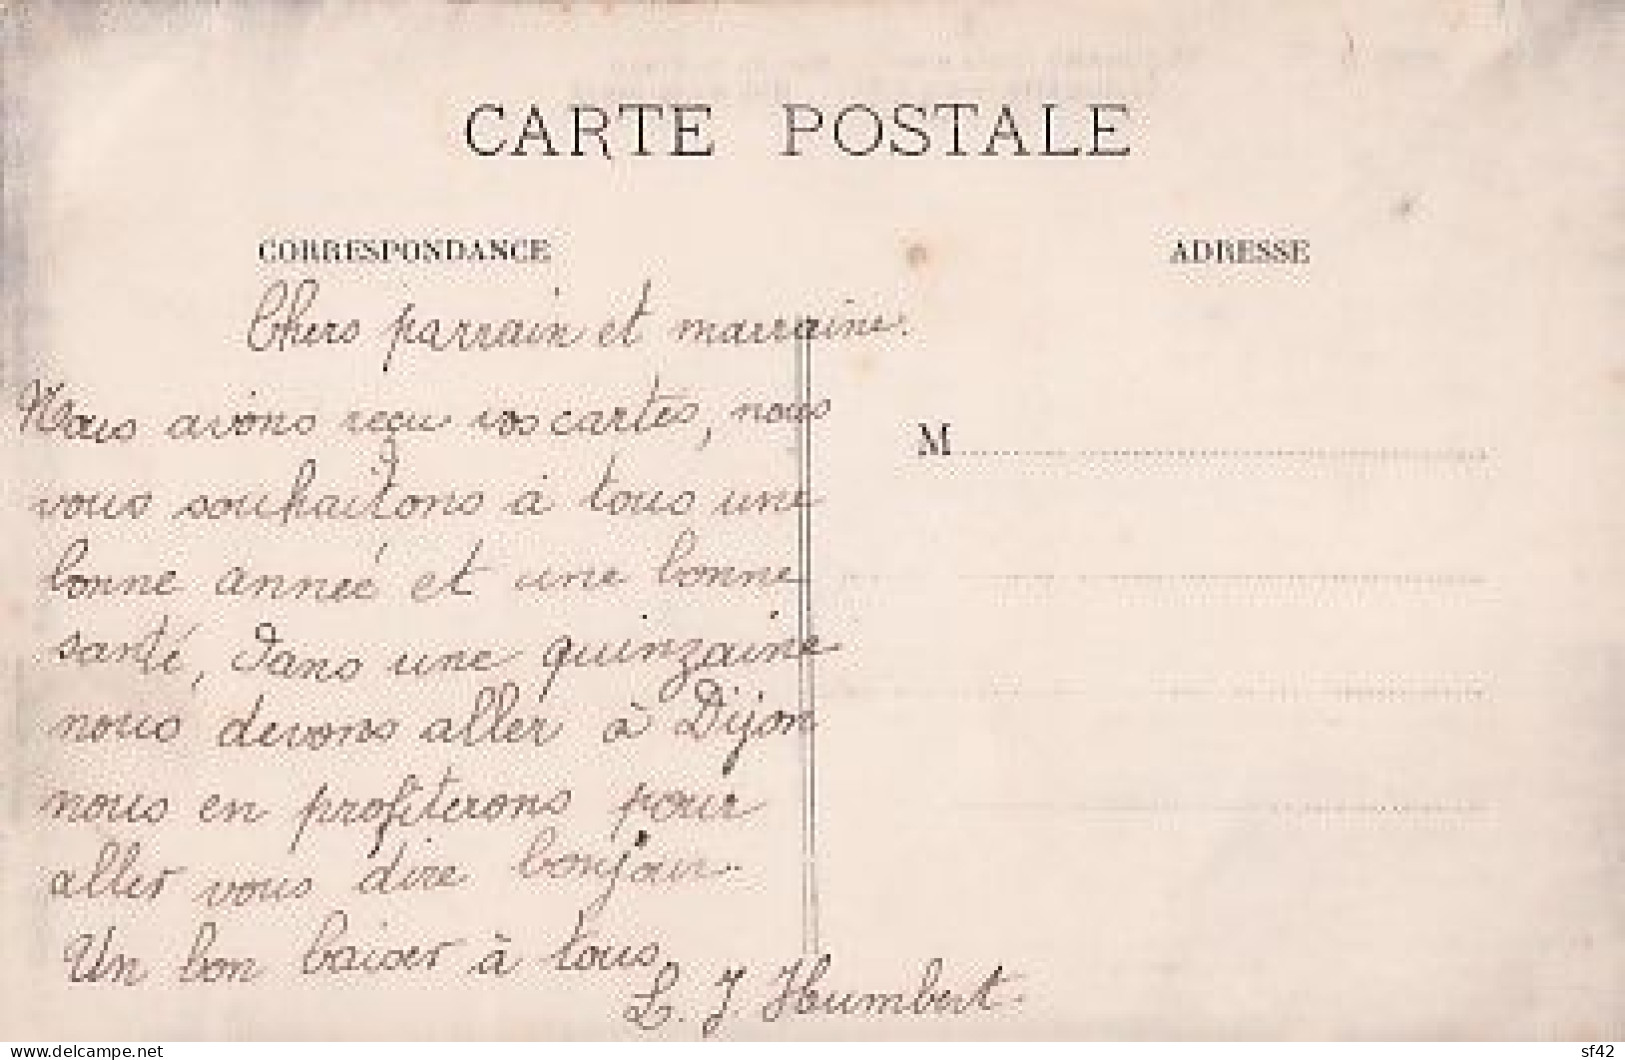 CARTE POSTALE
CORRESPONDANCE
ADRESSE
Chers parrain et marraine.
Nous avons reçu vos cartes, nous
vous souhaitons à tous une
bonne année et une bonne
santé, dans une quinzaine
nous devons aller à Dijon
nous en profiterons pour
aller vous dire bonjour.
Un bon baiser à tous
L. J. Humbert.
M
www.delcampe.net
sf42